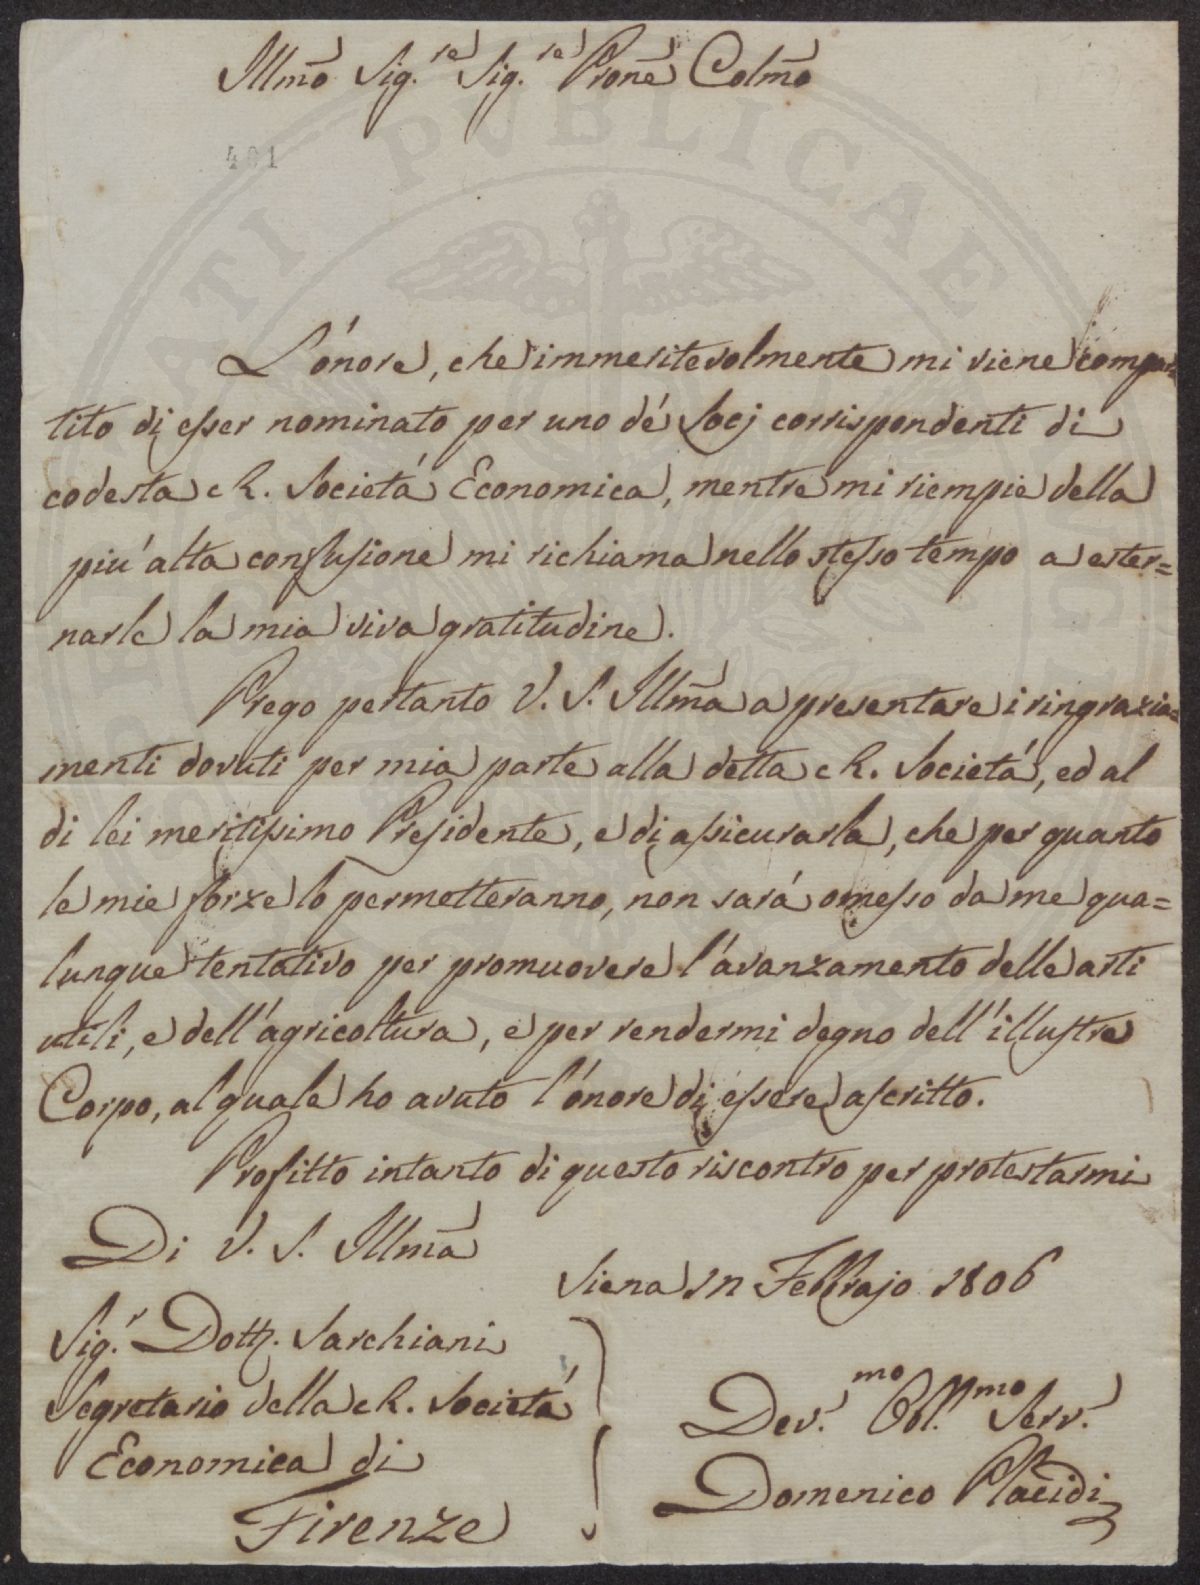 Illmo Sig.re Sig.re Prone Colmo
401
L'onore, che immeritevolmente mi viene compar=
tito di esser nominato per uno de' Socj corrispondenti di
codesta R. Società Economica, mentre mi riempie della
più alta confusione mi richiama nello stesso tempo a ester=
narle la mia viva gratitudine.
Prego pertanto V. S. Illma a presentare i ringrazia=
menti dovuti per mia parte alla detta R. Società, ed al
di lei meritissimo Presidente, e di assicurarla, che per quanto
le mie forze lo permetteranno, non sarà omesso da me qua=
lunque tentativo per promuovere l'avanzamento delle arti
utili, e dell'agricoltura, e per rendermi degno dell'illustre
Corpo, al quale ho avuto l'onore di essere ascritto.
Profitto intanto di questo riscontro per protestarmi
Di V. S. Illma
Siena Febbrajo 1806
Sig.r Dott. Sarchiani
Segretario della R. Società
Economica di
Firenze
Dev.mo Obl.mo Serv.
Domenico Placidi